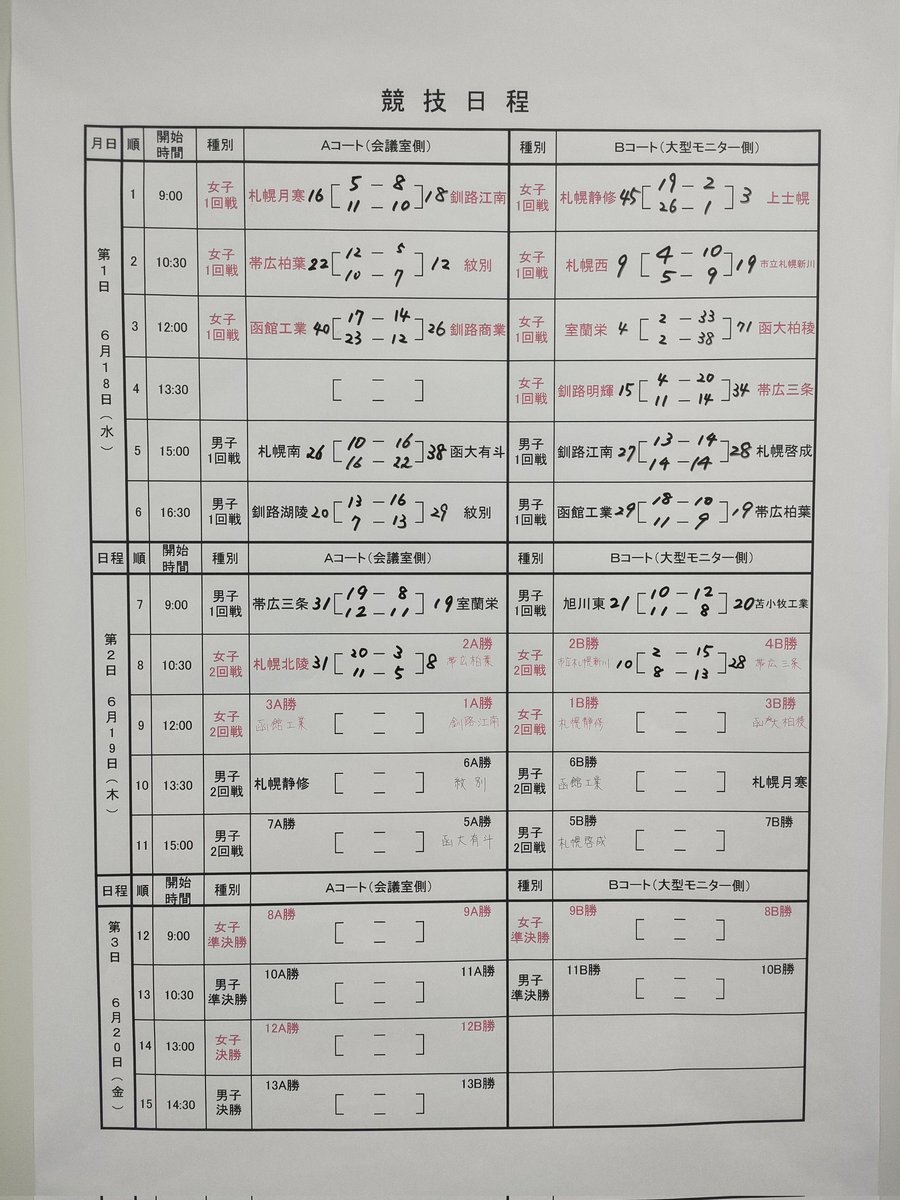 競技日程
月日 順 開始時間 種別 Aコート(会議室側) 種別 Bコート(大型モニター側)
第1日 6月18日(水)
1 9:00 女子1回戦 札幌月寒 16 [5 - 8 / 11 - 10] 18 釧路江南 女子1回戦 札幌静修 45 [19 - 2 / 26 - 1] 3 上士幌
2 10:30 女子1回戦 帯広柏葉 22 [12 - 5 / 10 - 7] 12 紋別 女子1回戦 札幌西 9 [4 - 10 / 5 - 9] 19 市立札幌新川
3 12:00 女子1回戦 函館工業 40 [17 - 14 / 23 - 12] 26 釧路商業 女子1回戦 室蘭栄 4 [2 - 33 / 2 - 38] 71 函大柏稜
4 13:30 [ - / - ] 女子1回戦 釧路明輝 15 [4 - 20 / 11 - 14] 34 帯広三条
5 15:00 男子1回戦 札幌南 26 [10 - 16 / 16 - 22] 38 函大有斗 男子1回戦 釧路江南 27 [13 - 14 / 14 - 14] 28 札幌啓成
6 16:30 男子1回戦 釧路湖陵 20 [13 - 16 / 7 - 13] 29 紋別 男子1回戦 函館工業 29 [18 - 10 / 11 - 9] 19 帯広柏葉
日程 順 開始時間 種別 Aコート(会議室側) 種別 Bコート(大型モニター側)
第2日 6月19日(木)
7 9:00 男子1回戦 帯広三条 31 [19 - 8 / 12 - 11] 19 室蘭栄 男子1回戦 旭川東 21 [10 - 12 / 11 - 8] 20 苫小牧工業
8 10:30 女子2回戦 札幌北陵 31 [20 - 3 / 11 - 5] 8 2A勝 帯広柏葉 女子2回戦 2B勝 市立札幌新川 10 [2 - 15 / 8 - 13] 28 4B勝 帯広三条
9 12:00 女子2回戦 3A勝 函館工業 [ - / - ] 1A勝 釧路江南 女子2回戦 1B勝 札幌静修 [ - / - ] 3B勝 函大柏稜
10 13:30 男子2回戦 札幌静修 [ - / - ] 6A勝 紋別 男子2回戦 6B勝 函館工業 [ - / - ] 札幌月寒
11 15:00 男子2回戦 7A勝 [ - / - ] 5A勝 函大有斗 男子2回戦 5B勝 札幌啓成 [ - / - ] 7B勝
日程 順 開始時間 種別 Aコート(会議室側) 種別 Bコート(大型モニター側)
第3日 6月20日(金)
12 9:00 女子準決勝 8A勝 [ - / - ] 9A勝 女子準決勝 9B勝 [ - / - ] 8B勝
13 10:30 男子準決勝 10A勝 [ - / - ] 11A勝 男子準決勝 11B勝 [ - / - ] 10B勝
14 13:00 女子決勝 12A勝 [ - / - ] 12B勝
15 14:30 男子決勝 13A勝 [ - / - ] 13B勝